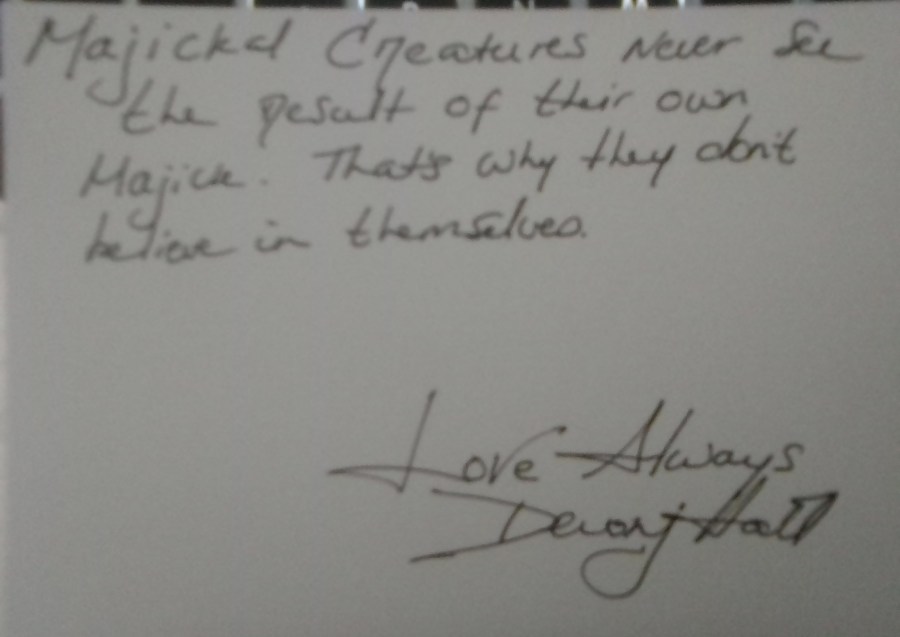 Majickal Creatures Never See
the result of their own
Majick. That's why they don't
believe in themselves.
Love Always